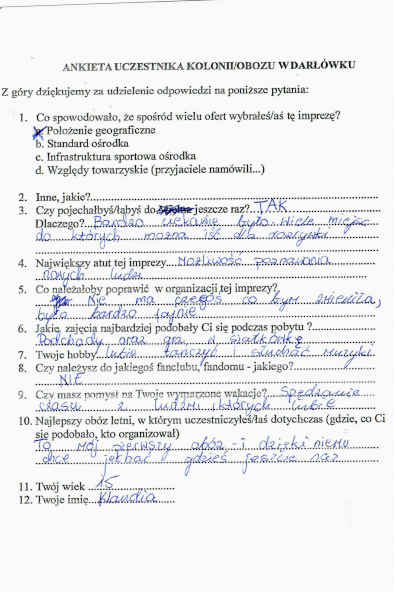 ANKIETA UCZESTNIKA KOLONII/OBOZU W DARŁÓWKU
Z góry dziękujemy za udzielenie odpowiedzi na poniższe pytania:
1. Co spowodowało, że spośród wielu ofert wybrałeś/aś tę imprezę?
a. Położenie geograficzne
b. Standard ośrodka
c. Infrastruktura sportowa ośrodka
d. Względy towarzyskie (przyjaciele namówili...)
2. Inne, jakie?
3. Czy pojechałbyś/łabyś do jeszcze raz? TAK
Dlaczego? Bardzo ciekawie było wiele miejsc
do których można iść dla rozrywki
4. Największy atut tej imprezy Możliwość poznawania
nowych ludzi
5. Co należałoby poprawić w organizacji tej imprezy?
Nie ma czegoś co bym zmieniła,
było bardzo fajnie
6. Jakie zajęcia najbardziej podobały Ci się podczas pobytu?
Podchody oraz gra w siatkówkę
7. Twoje hobby lubie tańczyć i słuchać muzyki
8. Czy należysz do jakiegoś fanclubu, fandomu - jakiego?
NIE
9. Czy masz pomysł na Twoje wymarzone wakacje? Spędzanie
czasu z ludźmi których lubię
10. Najlepszy obóz letni, w którym uczestniczyłeś/łaś dotychczas (gdzie, co Ci
się podobało, kto organizował)
To mój pierwszy obóz i dzięki niemu
chce jechać gdzieś jeszcze raz
11. Twój wiek 15
12. Twoje imię Klaudia